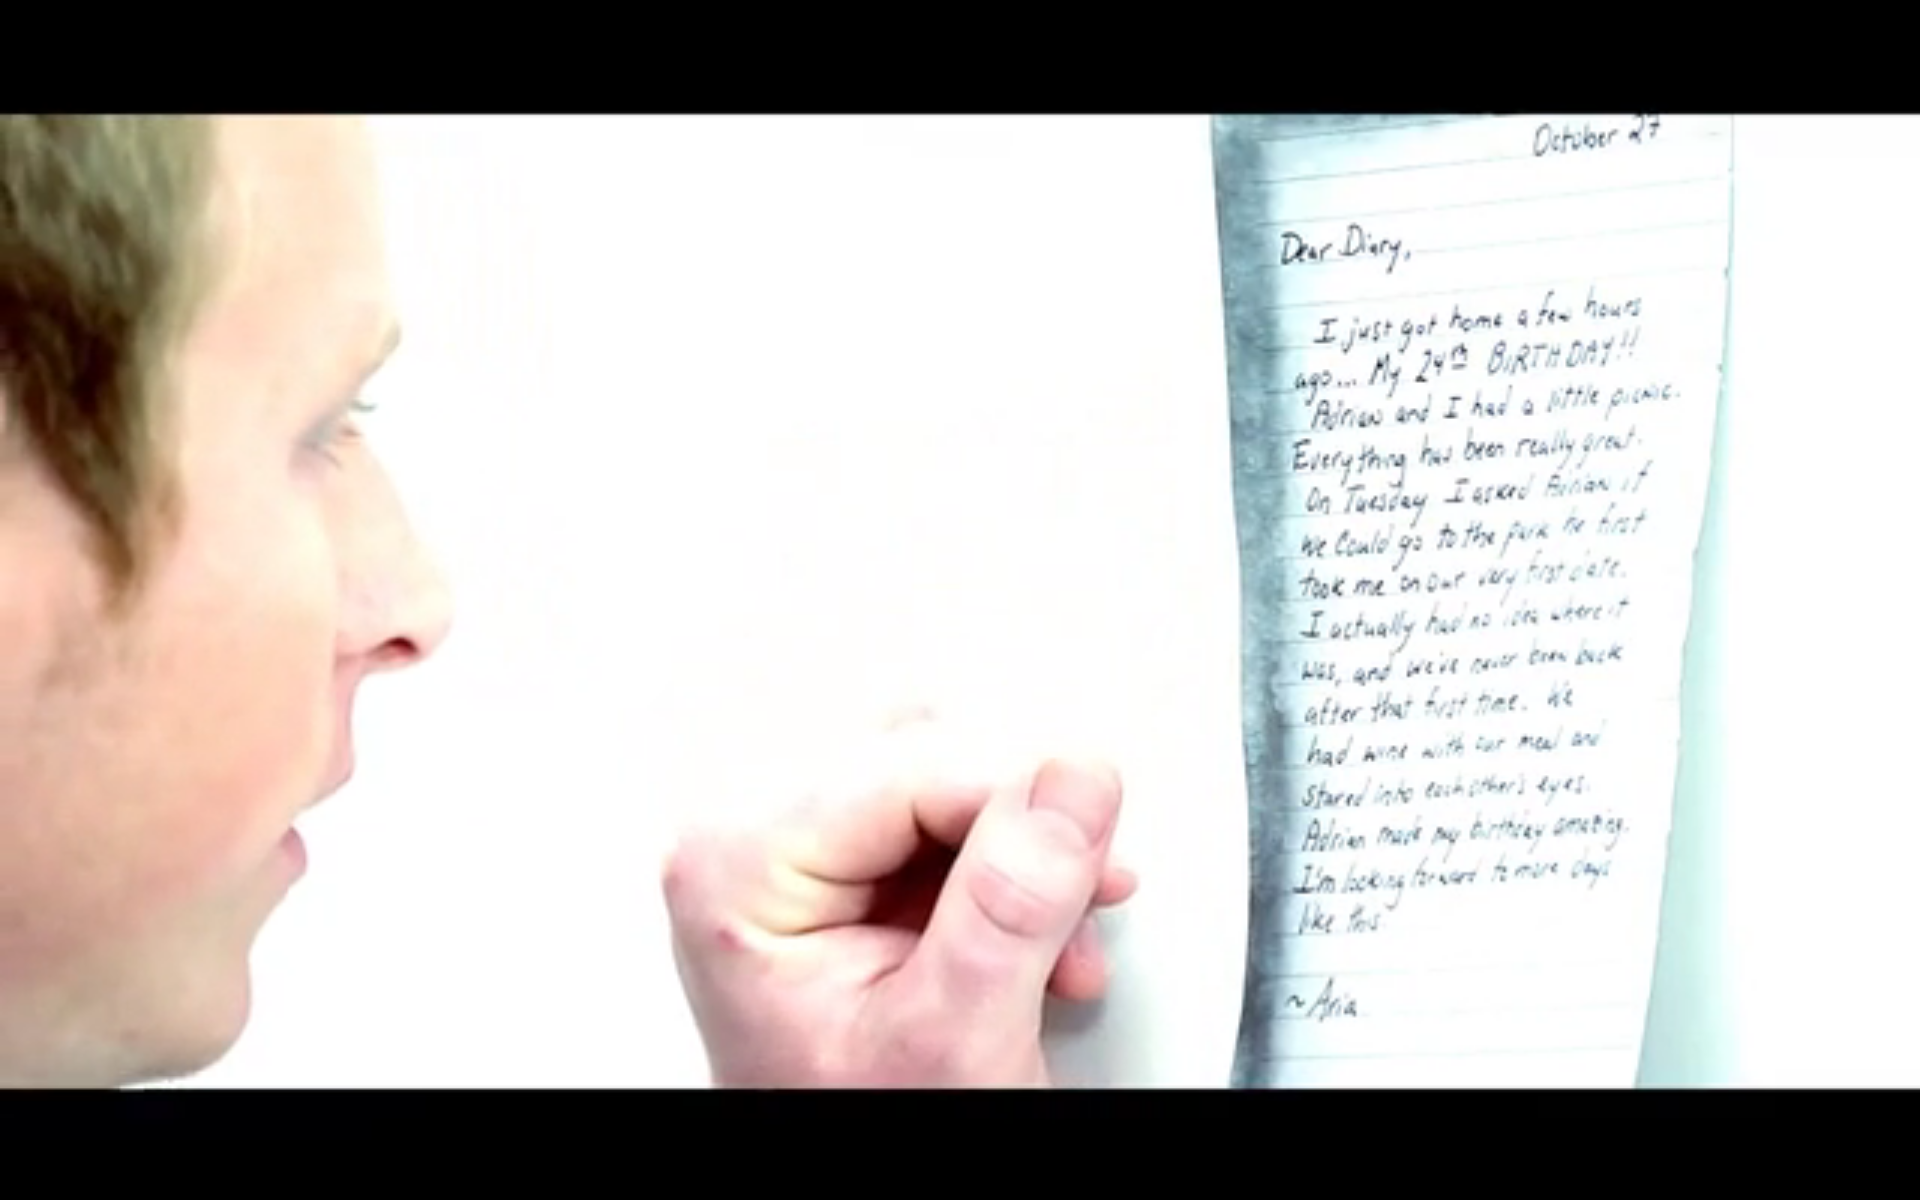 October 27
Dear Diary,
I just got home a few hours
ago... My 24th BIRTHDAY!!
Adrian and I had a little picnic.
Everything has been really great.
On Tuesday I asked Adrian if
we Could go to the park he first
took me on our very first date.
I actually had no idea where it
was, and we've never been back
after that first time. We
had wine with our meal and
Stared into each other's eyes.
Adrian made my birthday amazing.
I'm looking forward to more days
like this.
~ Aria